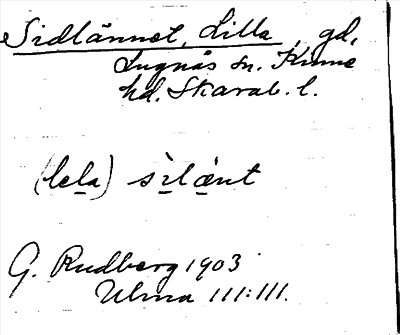 Sidlännet, Lilla, gd,
Lugnås sn. Kinne
hd. Skarab. l.
(lela) sìlänt
G. Rudberg 1903
Ulma 111:111.